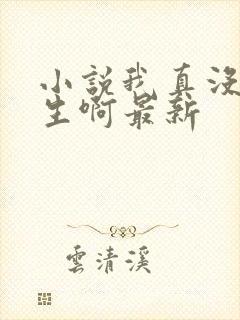 小說我真沒
生啊最新
雲清溪